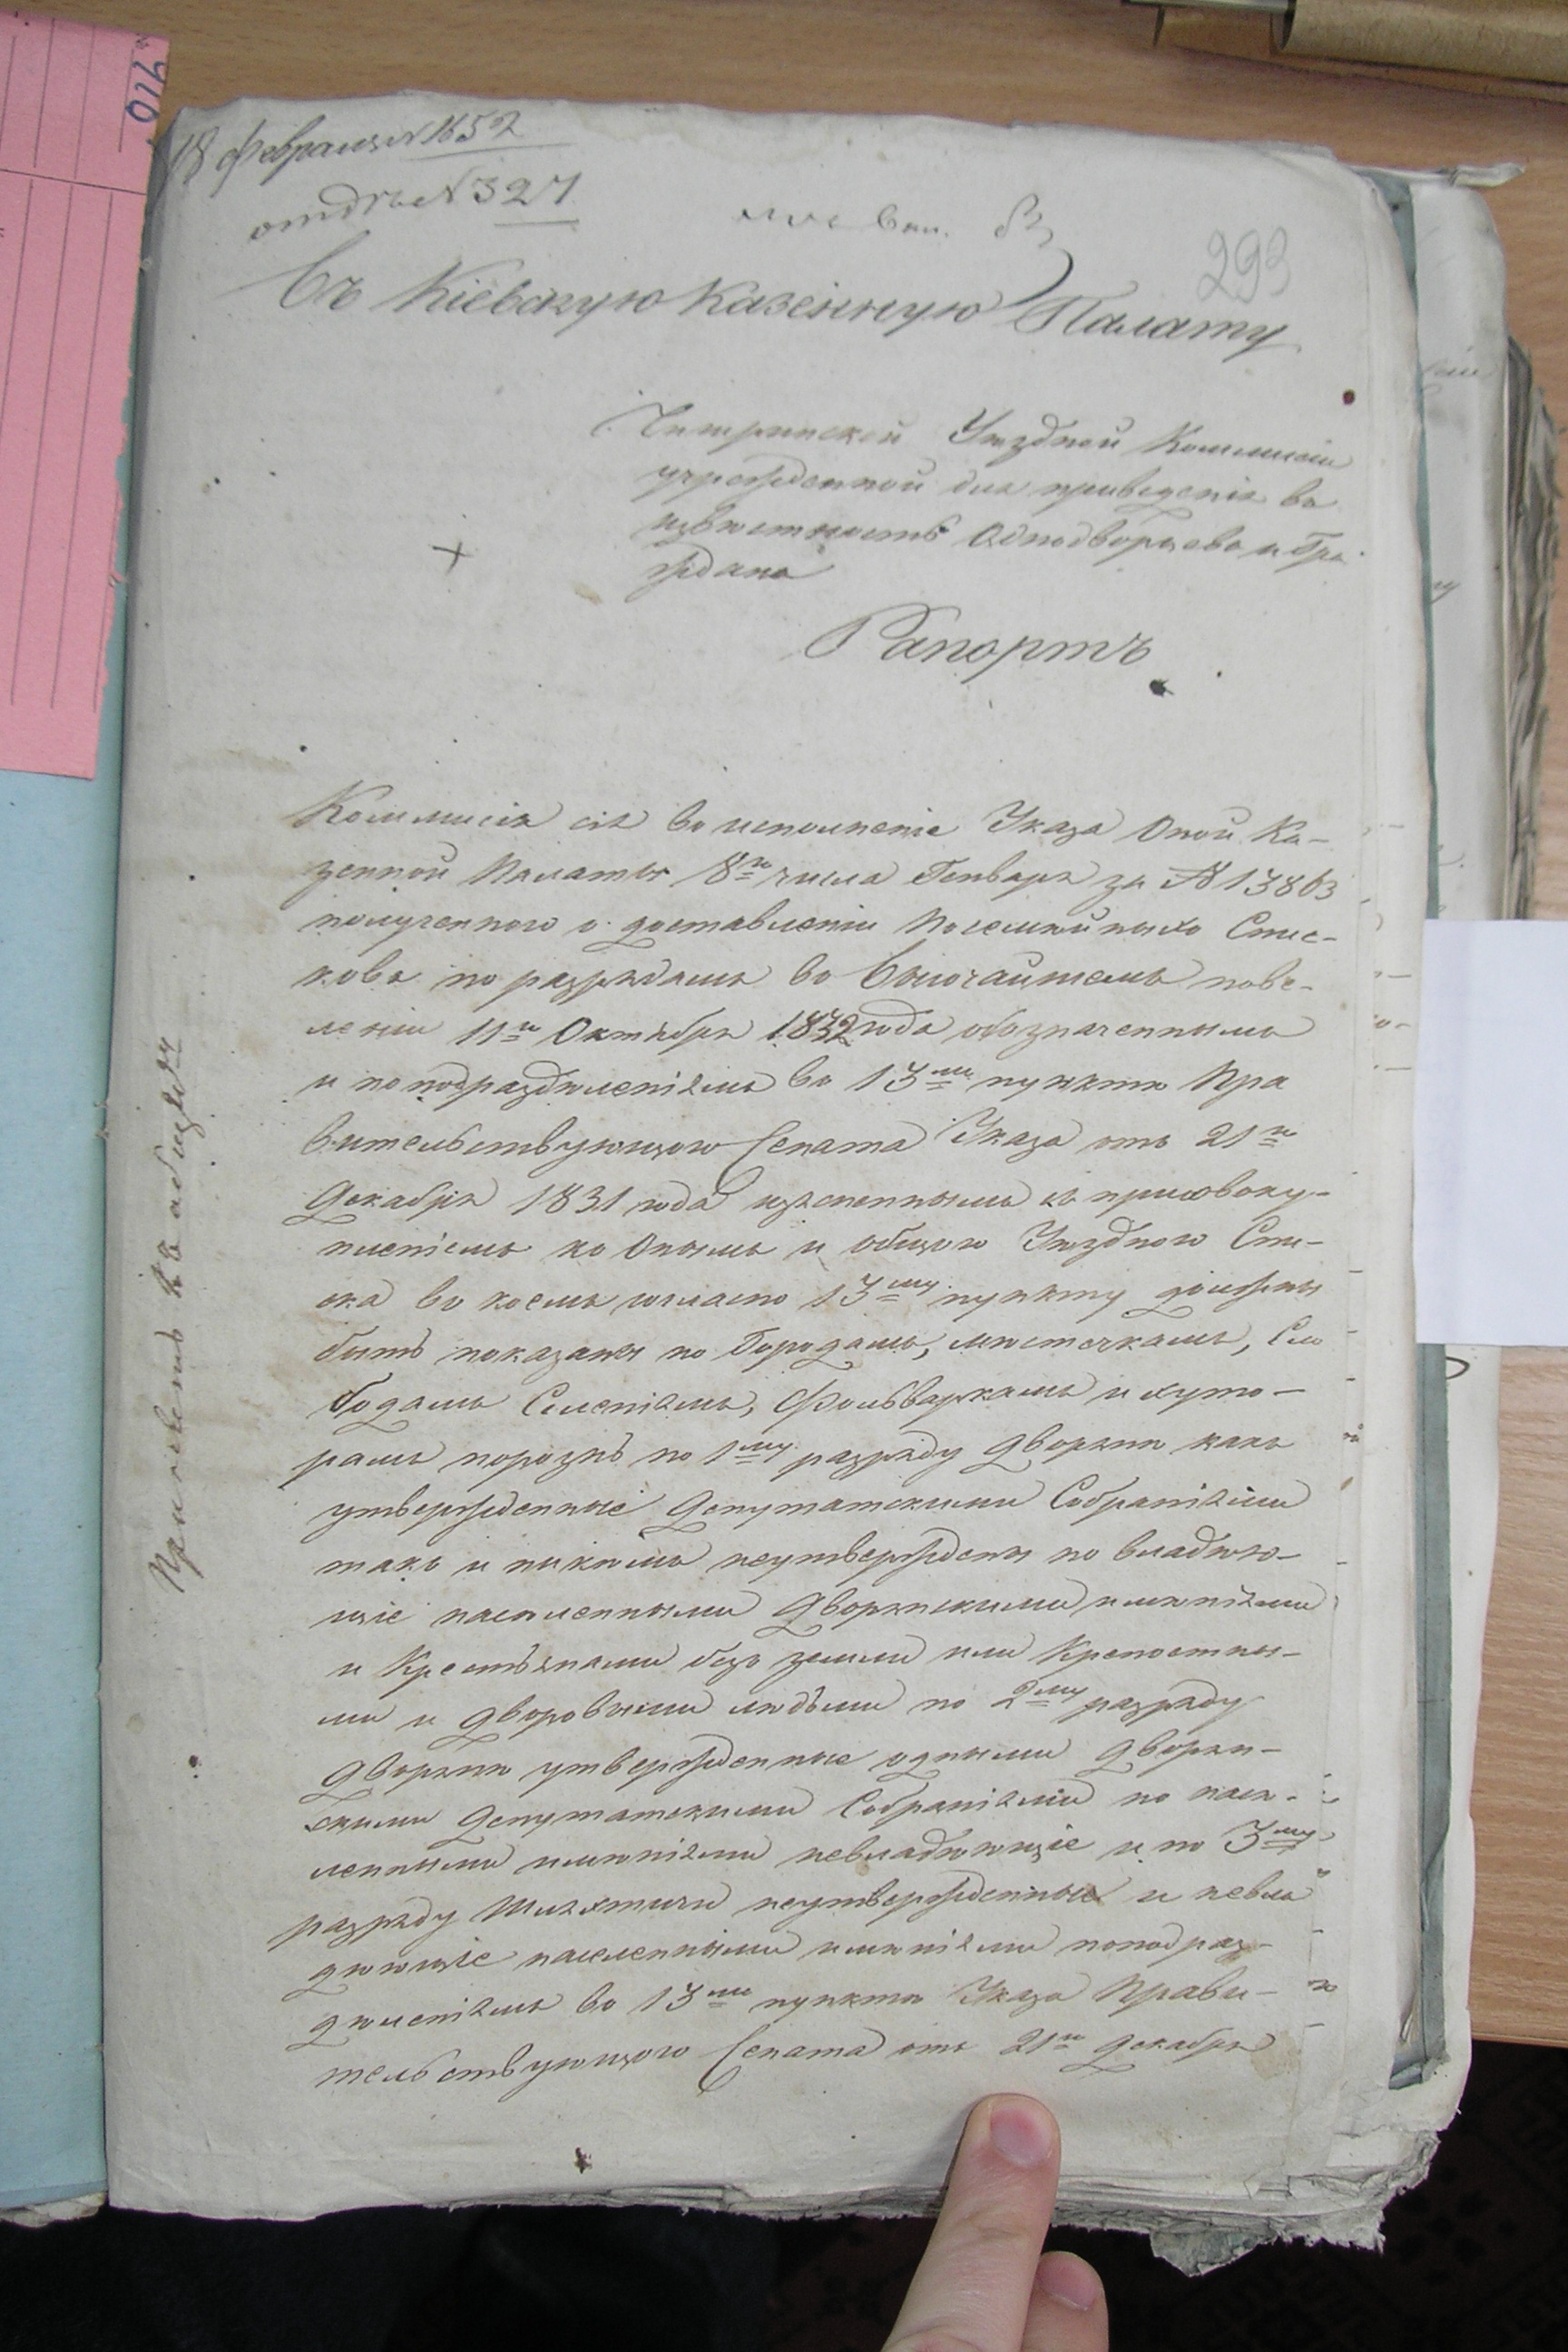 18 февраля № 1652
отдѣ № 327
293
Въ Кіевскую Казенную Палату
Чигринской Уѣздной Коммисіи
учрежденной для приведенія въ
извѣстность Однодворцевъ и Гра-
жданъ
Рапортъ
Коммисія сія во исполненіе Указа Оной Ка-
зенной Палаты 8го числа Генваря за № 13863
полученного о доставленіи Посемейныхъ Спис-
ковъ по разрядамъ въ Высочайшемъ пове-
леніи 11го Октября 1832 года обозначеннымъ
и по подраздѣленіямъ въ 13мъ пунктѣ Пра
вительствующого Сената Указа отъ 21го
Декабря 1831 года изясненнымъ съ присовоку-
пленіемъ ко Онымъ и общого Уѣздного Спи-
ска въ коемъ согласно 13му пункту должны
быть показаны по Городамъ, мѣстечкамъ, Сло
бодамъ Селеніямъ, Фольваркамъ и хуто-
рамъ порознь по 1му разряду Дворяни какъ
утвержденные Депутатскими Собраніями
такъ и никѣмъ неутверждены но владѣю-
щіе населенными Дворянскими имѣніями
и Крестьянами безъ земли или Крепостны-
ми и дворовыми людьми по 2му разряду
Дворяни утвержденные одными Дворян-
скими Депутатскими Собраніями но насе-
ленными имѣніями невладѣющіе и по 3му
разряду Шляхтичи неутвержденные и невла
дѣющіе населенными имѣніями по подраз-
дѣленіямъ въ 13мъ пунктѣ Указа Прави-
тельствующого Сената отъ 21го Декабря